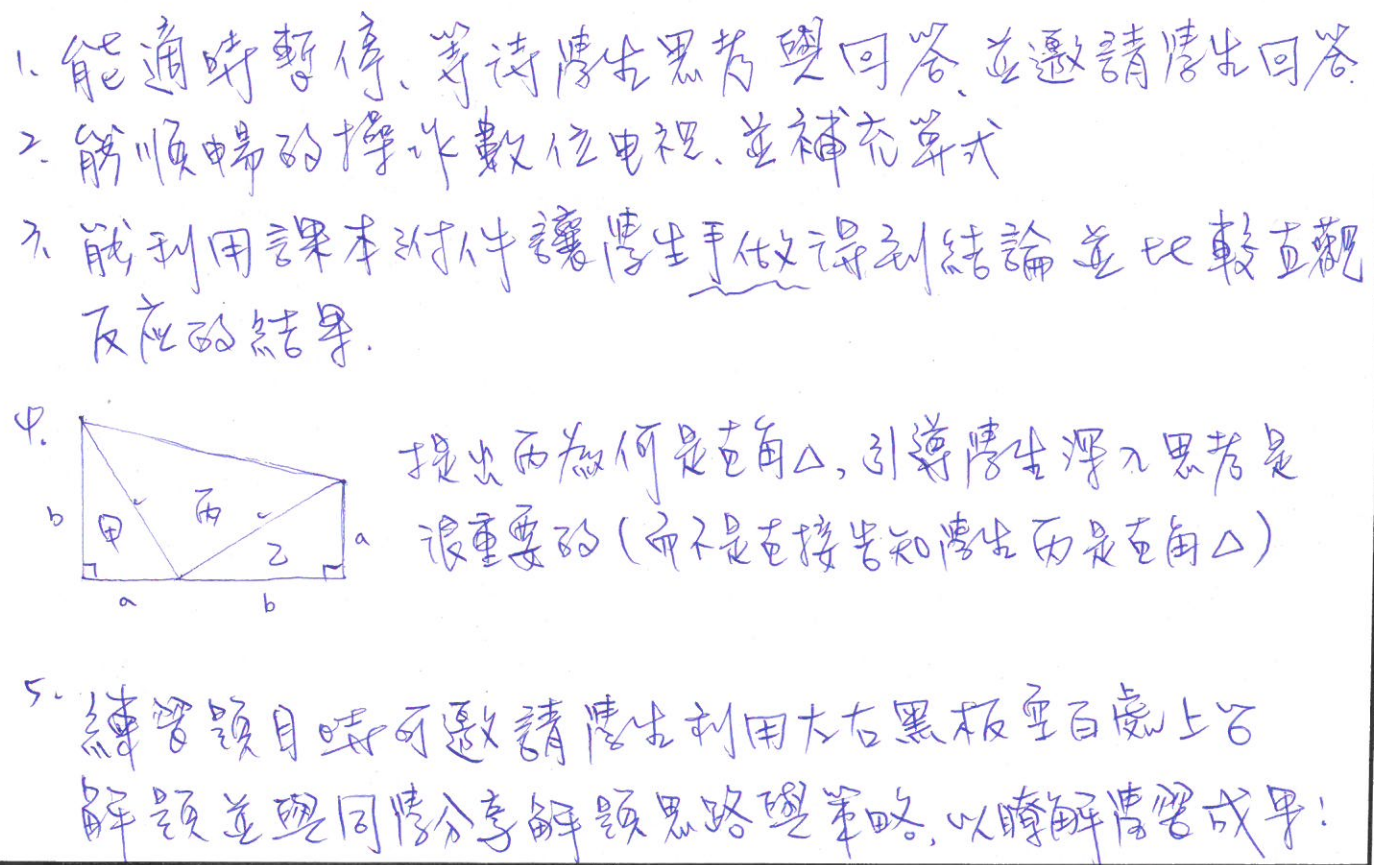 1. 能適時暫停、等待學生思考與回答、並邀請學生回答.
2. 能順暢的操作數位电視、並補充算式
3. 能利用課本附件讓學生手做得到結論並比較直觀
反应的結果.
4. 提出丙為何是直角△, 引導學生深入思考是
很重要的(而不是直接告知學生丙是直角△)
b 甲 丙 乙 a
a b
5. 練習題目時可邀請學生利用左右黑板空白處上台
解題並與同學分享解題思路與策略, 以瞭解學習成果!